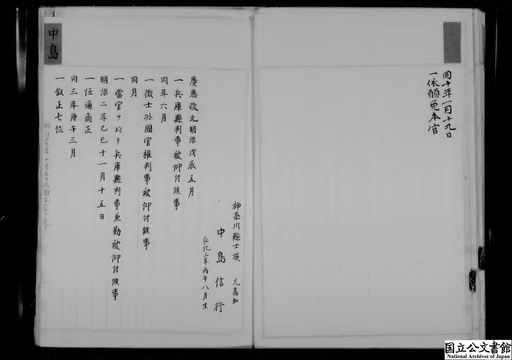 同十年一月十九日
一依願免本官
中島
神奈川縣士族 元高知
中島信行
弘化三年丙午八月生
慶應改元明治戊辰五月
一兵庫縣判事被仰付候事
同年六月
一徴士外國官權判事被仰付候事
同月
一當官ヲ以テ兵庫縣判事兼勤被仰付候事
明治二年己巳十一月十五日
一任通商正
同三年庚午三月
一叙正七位
国立公文書館
National Archives of Japan